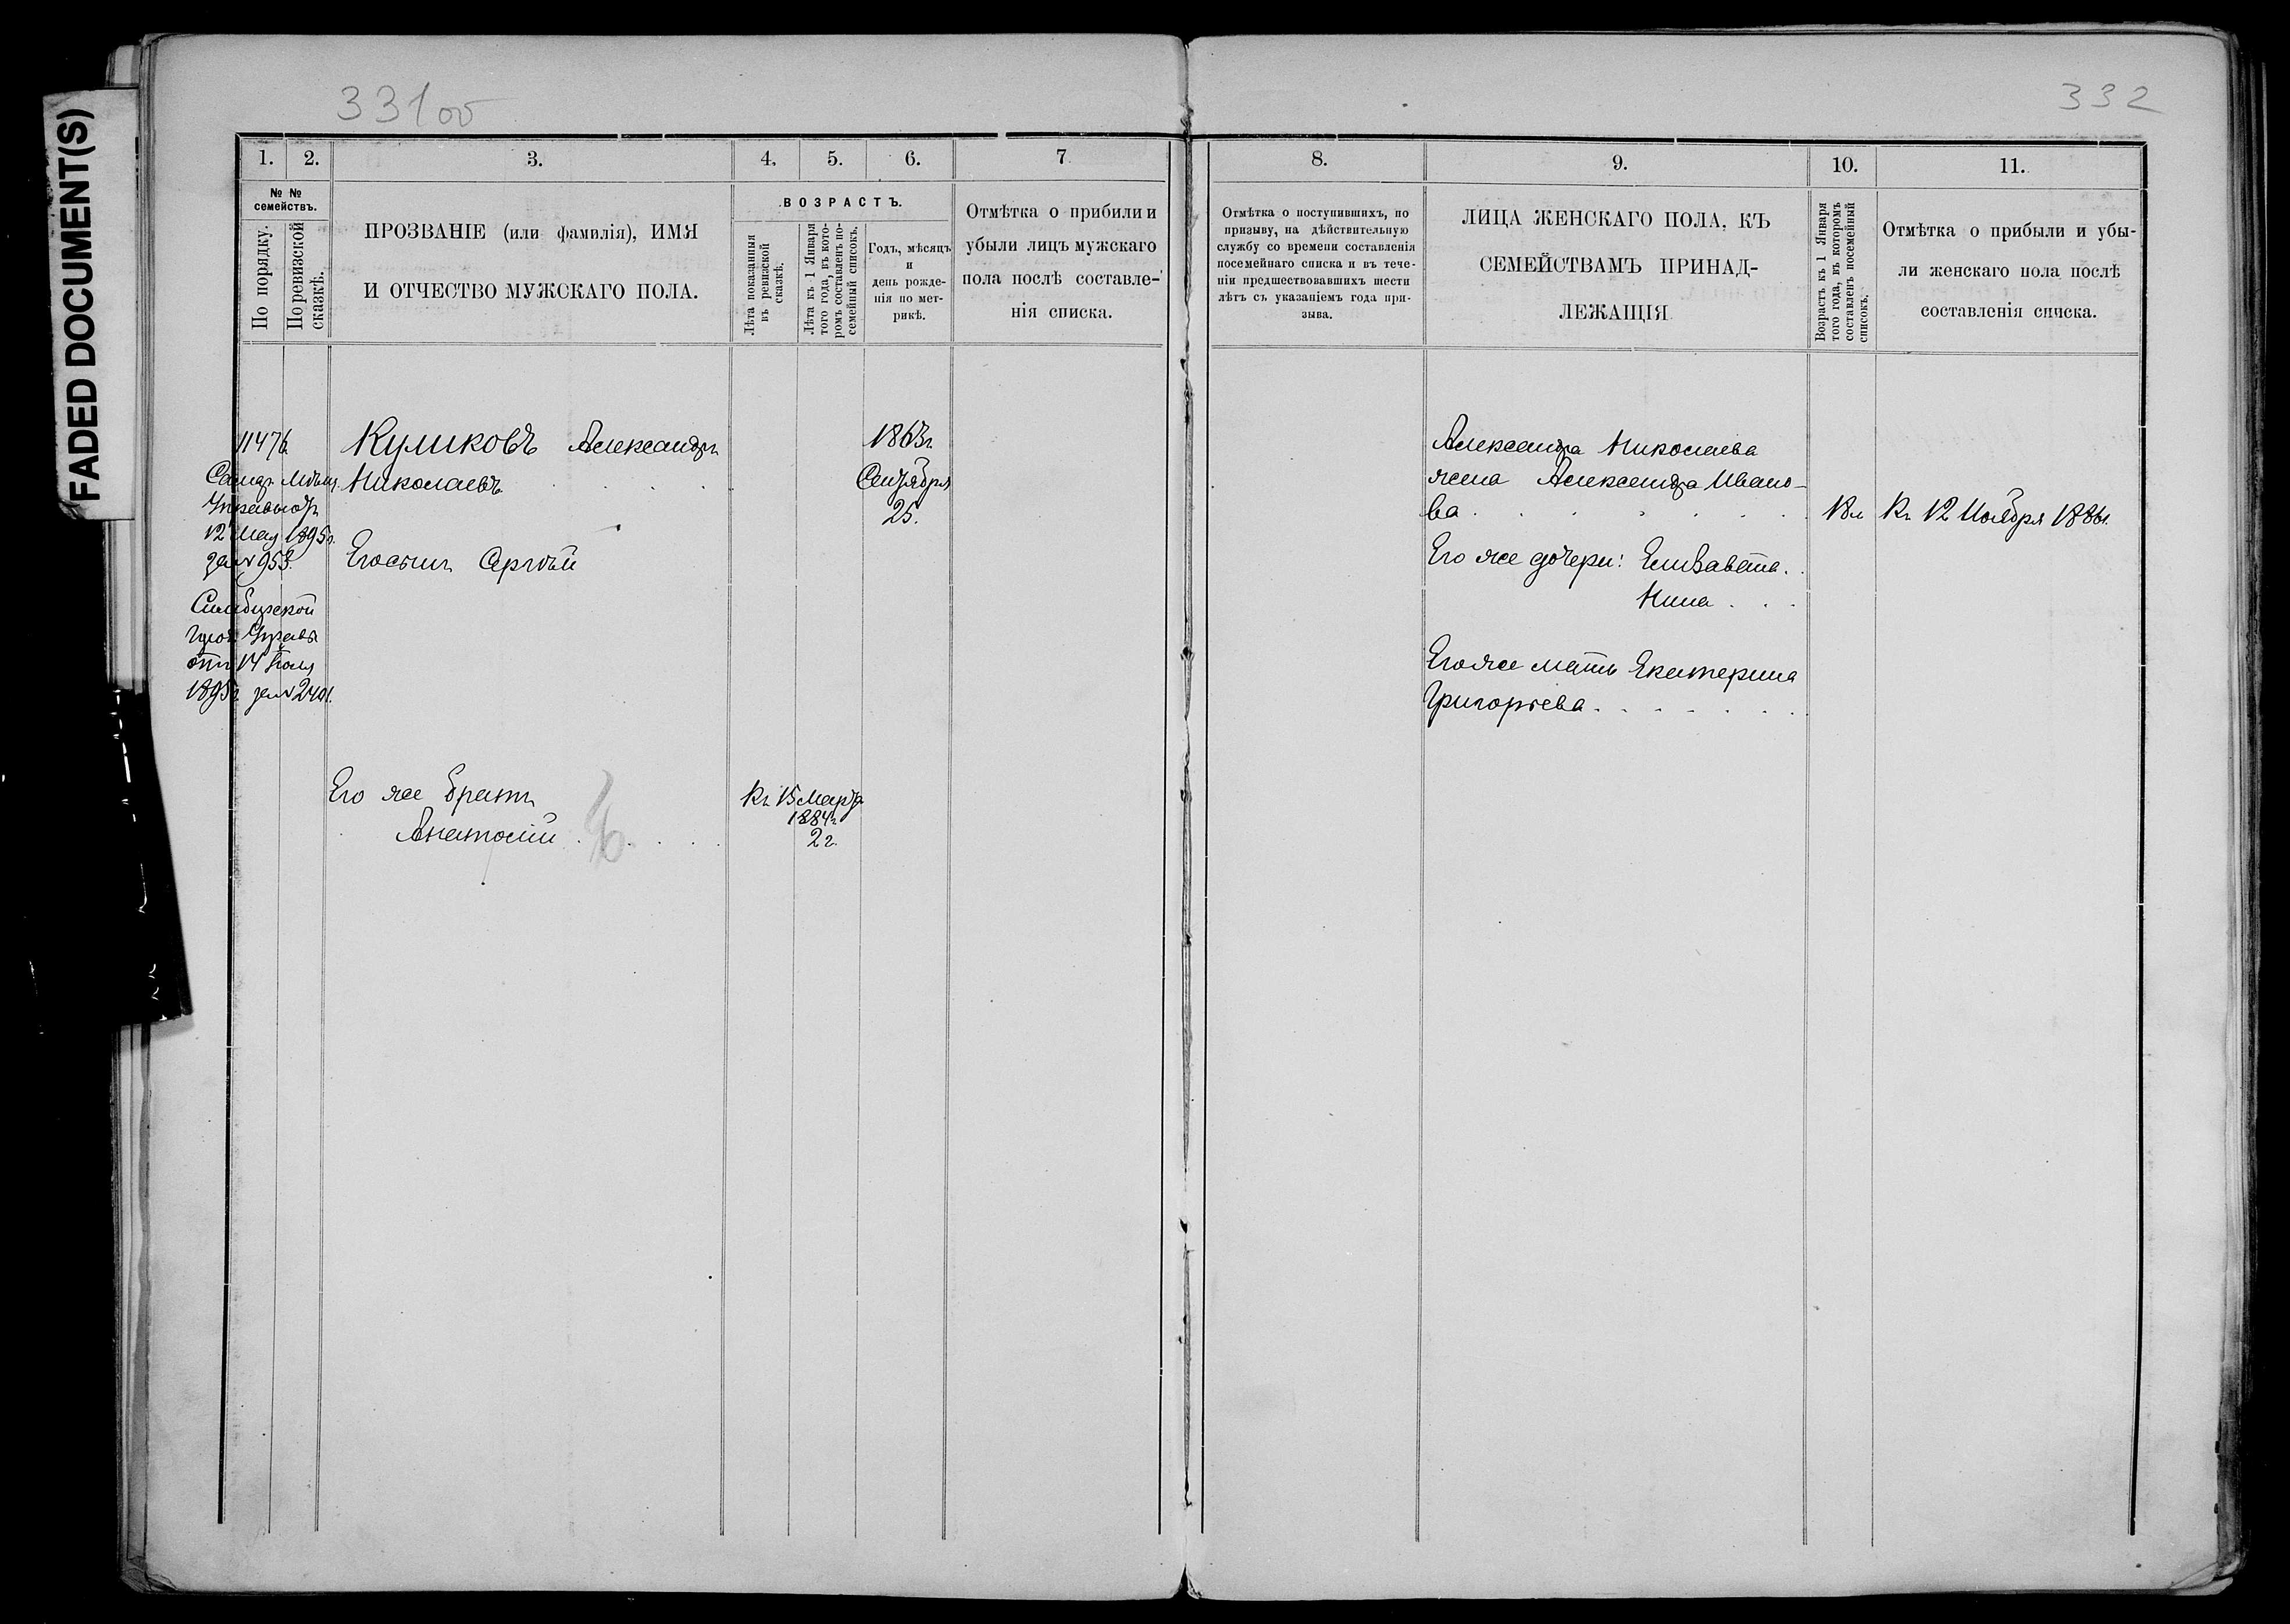 FADED DOCUMENT(S)
331об
332
1. 2. 3. 4. 5. 6. 7
8. 9. 10. 11.
№ №
семействъ.
По порядку.
По ревизской
сказкѣ.
ПРОЗВАНІЕ (или фамилія), ИМЯ
И ОТЧЕСТВО МУЖСКАГО ПОЛА.
ВОЗРАСТЪ.
Лѣта показанныя
въ ревизской
сказкѣ.
Лѣта къ 1 Января
того года, въ кото-
ромъ составленъ по-
семейный списокъ.
Годъ, мѣсяцъ
и
день рожде-
нія по мет-
рикѣ.
Отмѣтка о прибыли и
убыли лицъ мужскаго
пола послѣ составле-
нія списка.
Отмѣтка о поступившихъ, по
призыву, на дѣйствительную
службу со времени составленія
посемейнаго списка и въ тече-
ніи предшествовавшихъ шести
лѣтъ съ указаніемъ года при-
зыва.
ЛИЦА ЖЕНСКАГО ПОЛА, КЪ
СЕМЕЙСТВАМЪ ПРИНАД-
ЛЕЖАЩІЯ
Возрастъ къ 1 Января
того года, въ которомъ
составленъ посемейный
списокъ.
Отмѣтка о прибыли и убы-
ли женскаго пола послѣ
составленія списка.
11476
Самар. Мѣщ.
12 Мая 1895г.
за № 953.
Симбирской
Управы
отъ 14 Іюля
1895г. за № 2401.
Куликовъ Александръ
Николаевъ
Его сынъ Сергѣй
Его же братъ
Анатолій
Къ 15 Марта
1884г.
2 г.
1863г.
Сентября
25.
Александра Николаева
жена Александра Ивано-
ва
Его же дочери: Елизавета
Нина
Его же мать Екатерина
Григорьева
18л
Къ 12 Ноября 1886г.